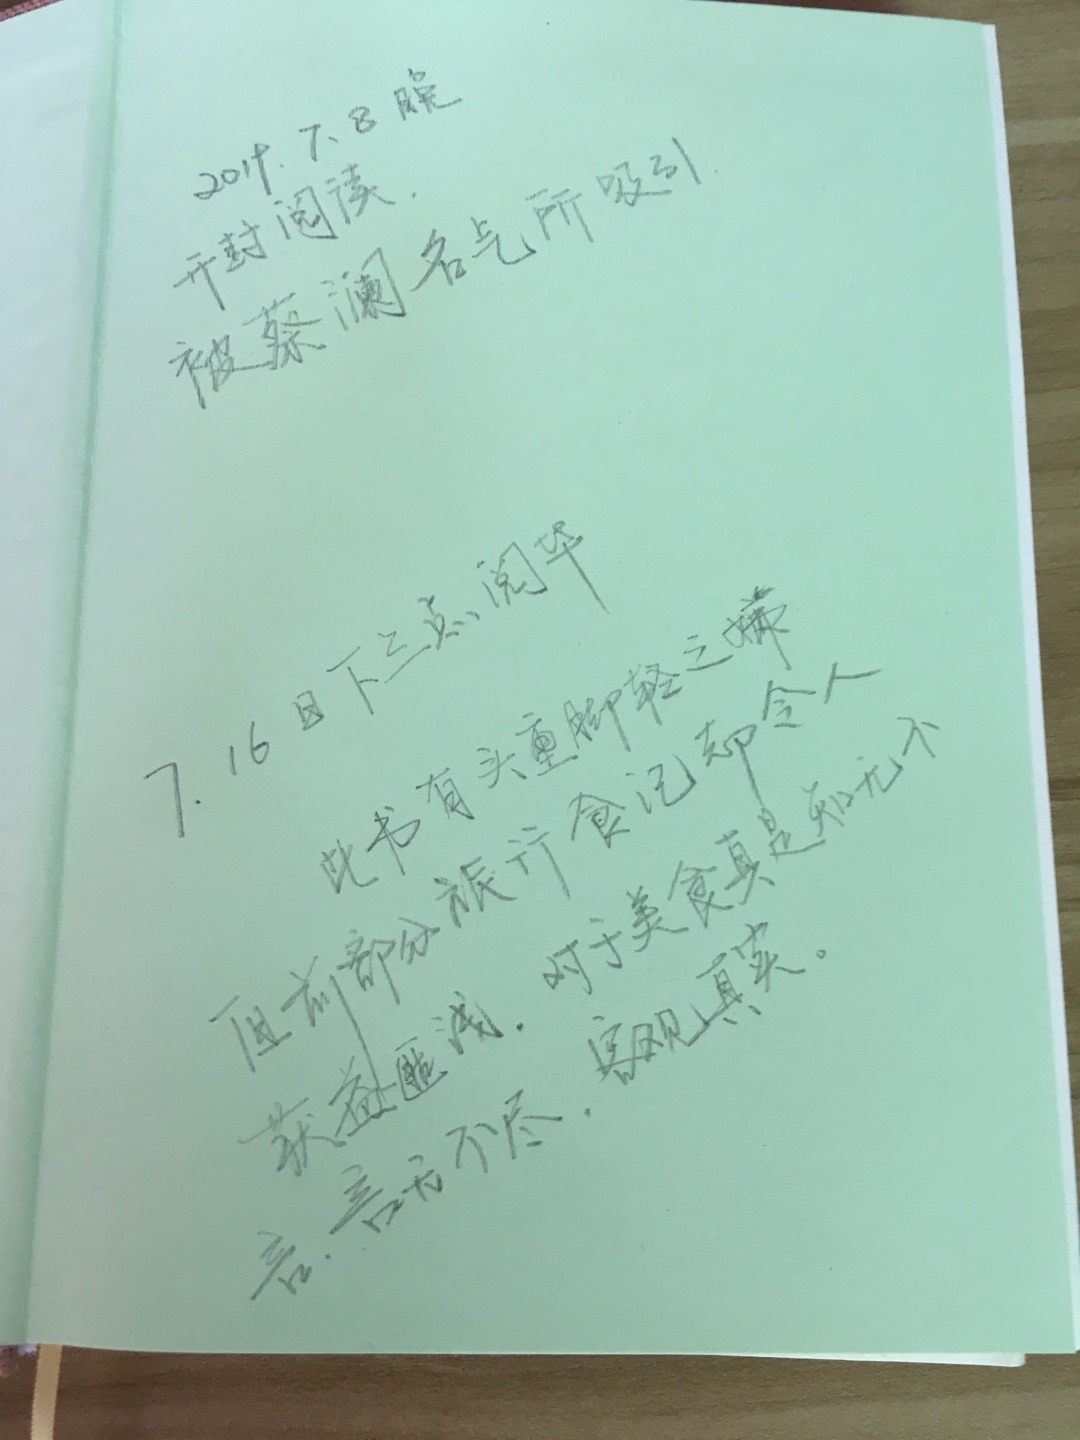 2019.7.8晚
开封阅读.
被蔡澜名气所吸引.
7.16日下三点阅毕
此书有头重脚轻之嫌
但前部分旅行食记却令人
获益匪浅.对于美食真是知无不
言.言无不尽.客观真实。